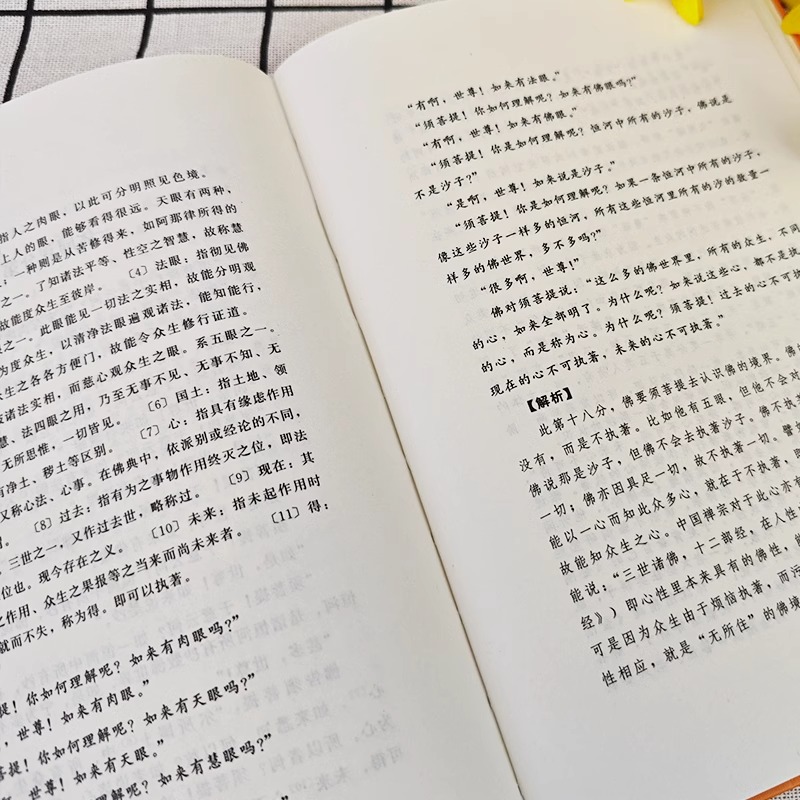 指人之肉眼，以此可分明照见色境。
上人的眼，能够看得很远。天眼有两种，
：一种则是从苦修得来，如阿那律所得的
之一。了知诸法平等、性空之智慧，故称慧
故能度众生至彼岸。〔4〕法眼：指彻见佛
之一。此眼能见一切法之实相，故能分明观
为度众生，以清净法眼遍观诸法，能知能行，
众生之各各方便门，故能令众生修行证道。
诸法实相，而慈心观众生之眼。系五眼之一。
慧、法四眼之用，乃至无事不见、无事不知、无
无所思惟，一切皆见。〔6〕国土：指土地、领
有净土、秽土等区别。〔7〕心：指具有缘虑作用
又称心法、心事。在佛典中，依派别或经论的不同，
〔8〕过去：指有为之事物作用终灭之位，即法
三世之一，又作过去世，略称过。〔9〕现在：其
位也。现今存在之义。〔10〕未来：指未起作用时
之作用、众生之果报等之当来而尚未来者。〔11〕得：
就而不失，称为得。即可以执著。
提！你如何理解呢？如来有肉眼吗？”
，世尊！如来有肉眼。”
菩提！你如何理解呢？如来有天眼吗？”
，世尊！如来有天眼。”
提！你如何理解呢？如来有慧眼吗？”
“有啊，世尊！如来有法眼。”
“须菩提！你如何理解呢？如来有佛眼吗？”
“有啊，世尊！如来有佛眼。”
“须菩提！你是如何理解呢？恒河中所有的沙子，佛说是
不是沙子？”
“是啊，世尊！如来说是沙子。”
“须菩提！你是如何理解呢？如果一条恒河中所有的沙子，
像这些沙子一样多的恒河，所有这些恒河里所有的沙的数量一
样多的佛世界，多不多吗？”
“很多啊，世尊！”
佛对须菩提说：“这么多的佛世界里，所有的众生，不同
的心，如来全部明了。为什么呢？如来说这些心，都不是执
的心，而是称为心。为什么呢？须菩提！过去的心不可执
现在的心不可执著，未来的心不可执著。”
【解析】
此第十八分，佛要须菩提去认识佛的境界。佛
没有，而是不执著。比如他有五眼，但他不会对
佛说那是沙子，但佛不会去执著沙子。佛不执
一切；佛亦因具足一切，故不执著一切。譬
能以一心而知此众多心，就在于不执著，即
故能知众生之心。中国禅宗对于此心亦有
能说：“三世诸佛，十二部经，在人性
经》）即心性里本来具有的佛性，能
可是因为众生由于烦恼执著，而污
性相应，就是“无所住”的佛境